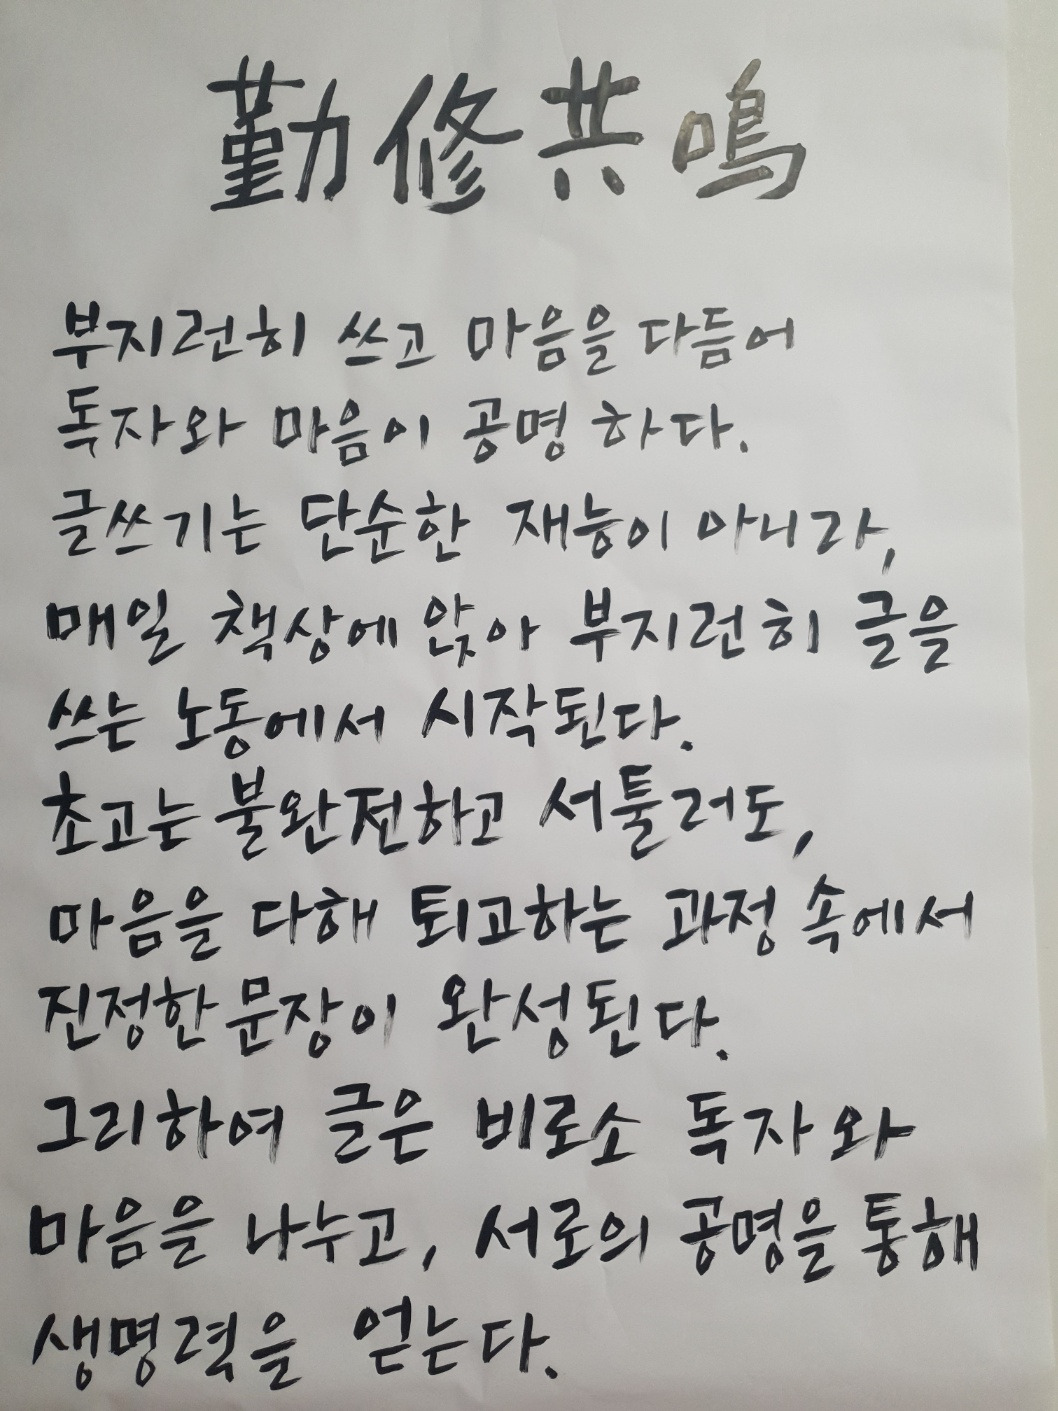 勤修共鳴
부지런히 쓰고 마음을 다듬어
독자와 마음이 공명 하다.
글쓰기는 단순한 재능이 아니라,
매일 책상에 앉아 부지런히 글을
쓰는 노동에서 시작된다.
초고는 불완전하고 서툴러도,
마음을 다해 퇴고하는 과정 속에서
진정한 문장이 완성된다.
그리하여 글은 비로소 독자와
마음을 나누고, 서로의 공명을 통해
생명력을 얻는다.